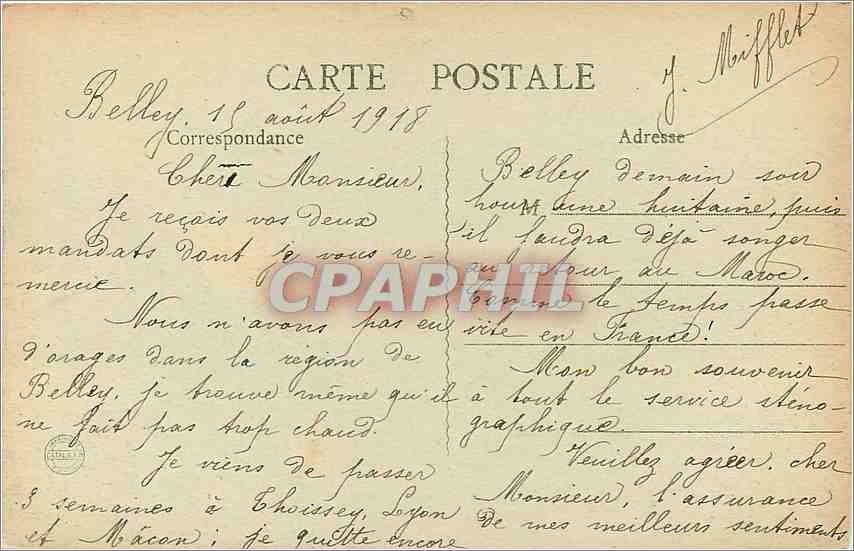 CARTE POSTALE
J. Mifflet
Belley, 15 août 1918
Correspondance
Cher Monsieur,
Je reçois vos deux
mandats dont je vous re-
mercie.
Nous n'avons pas eu
d'orages dans la région de
Belley, je trouve même qu'il
ne fait pas trop chaud.
Je viens de passer
3 semaines à Thoissey, Lyon
et Mâcon ; je quitte encore
Adresse
Belley demain soir
pour une huitaine, puis
M
il faudra déjà songer
au retour au Maroc.
Comme le temps passe
vite en France !
Mon bon souvenir
à tout le service sténo-
graphique.
Veuillez agréer, cher
Monsieur, l'assurance
de mes meilleurs sentiments
CPAPHIL